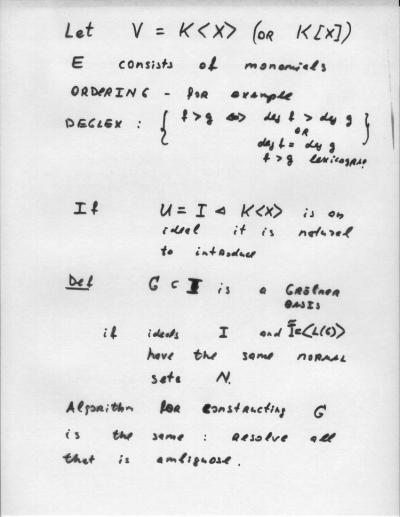 Let V = K<X> (OR K[X])
E consists of monomials
ORDERING - for example
DEGLEX : { f > g ⇔ deg f > deg g
OR
deg f = deg g
f > g lexicograp }
If U = I ◁ K<X> is an
ideal it is natural
to introduce
Def G ⊂ I is a GRÖBNER
BASIS
if ideals I and Ĩ=<L(G)>
have the same NORMAL
sets N.
Algorithm for constructing G
is the same : resolve all
that is ambiguose.